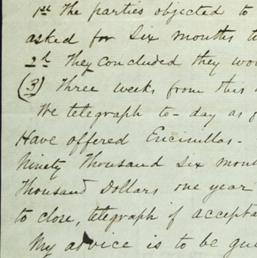 1st The parties objected to
asked for Six months t
2d They concluded they wou
(3) Three weeks from this
the telegraph to-day as f
Have offered Encinillas-
Ninety Thousand Six mon
Thousand Dollars one year
to close, telegraph if accepta
My advice is to be gu